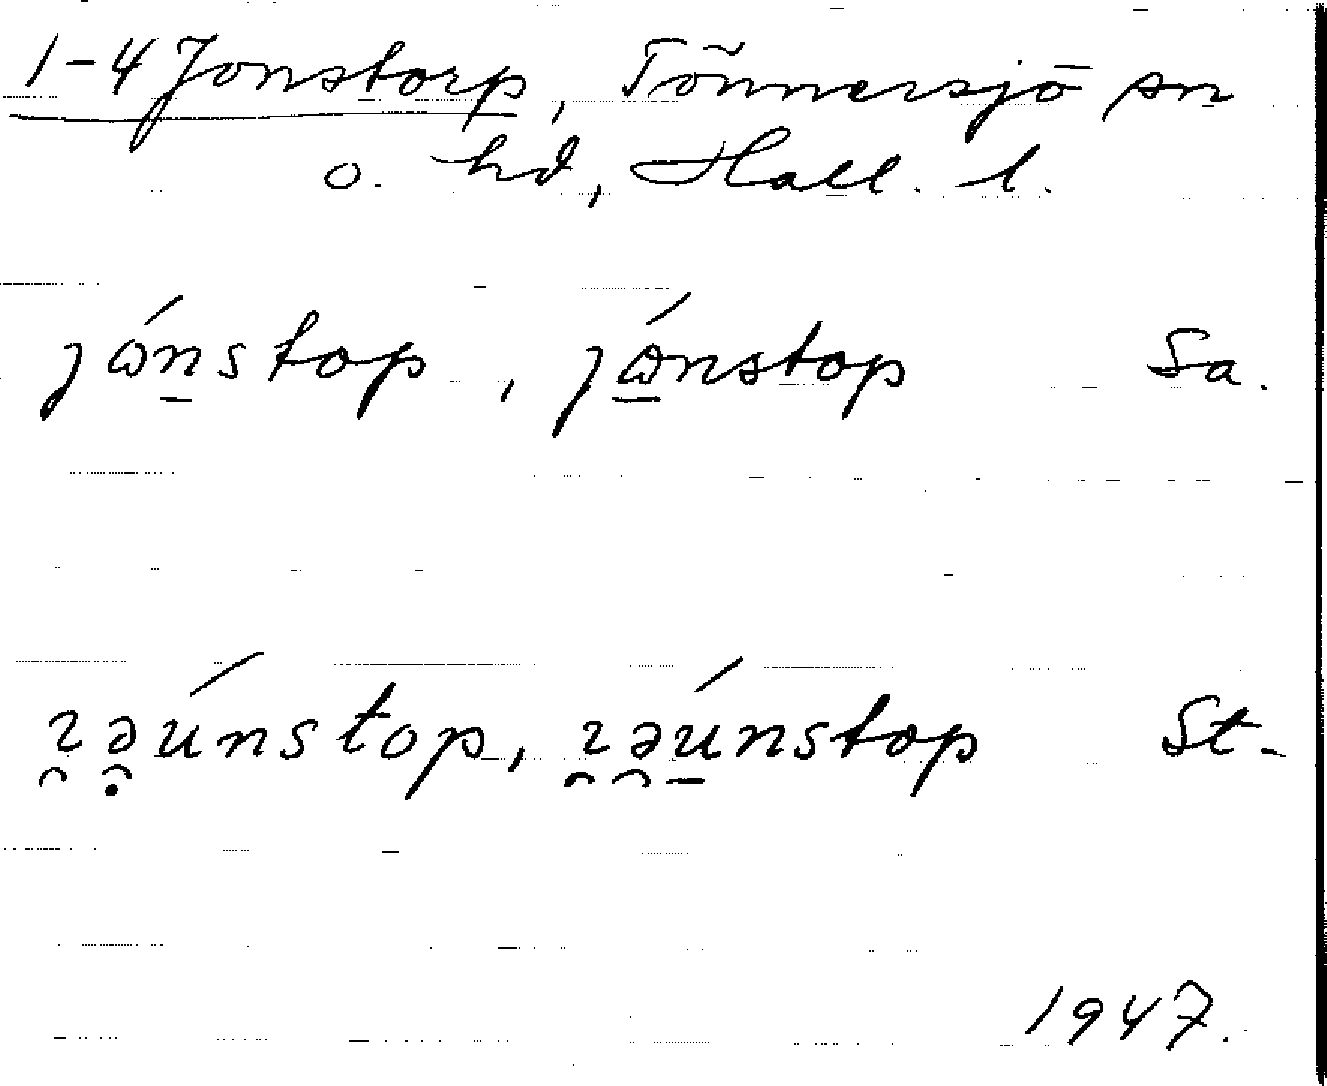 1-4 Jonstorp, Tönnersjö sn
o. hd, Hall. l.
jώn̲stop, jώ̲nstop Sa.
ɿ̯ə̯̣únstop, ɿ̯ə̯ú̲nstop St.
1947.